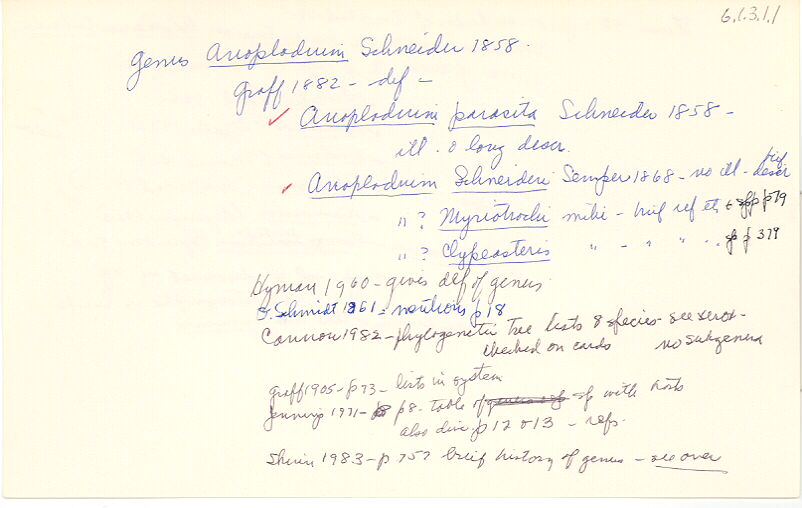 6.1.3.1.1
Genus Anoplodium Schneider 1858.
Graff 1882 - def -
✓ Anoplodium parasita Schneider 1858 -
ill. & long descr.
✓ Anoplodium Schneideri Semper 1868 - no ill - brief descr
" ? Myriotrochi mihi - brief ref etc p 79
" ? Clypeasteris " - " " . p 379
Hyman 1960 - gives def of genus
O. Schmidt 1861 - mentions p 18
Cannon 1982 - phylogenetic tree lists 8 species - see xerox -
checked on cards no subgenera
Graff 1905 - p 73 - lists in system
Jennings 1971 - p 8 - table of sp with hosts
also disc. p 12 & 13 - refs.
1983 - p 757 brief history of genus - see over